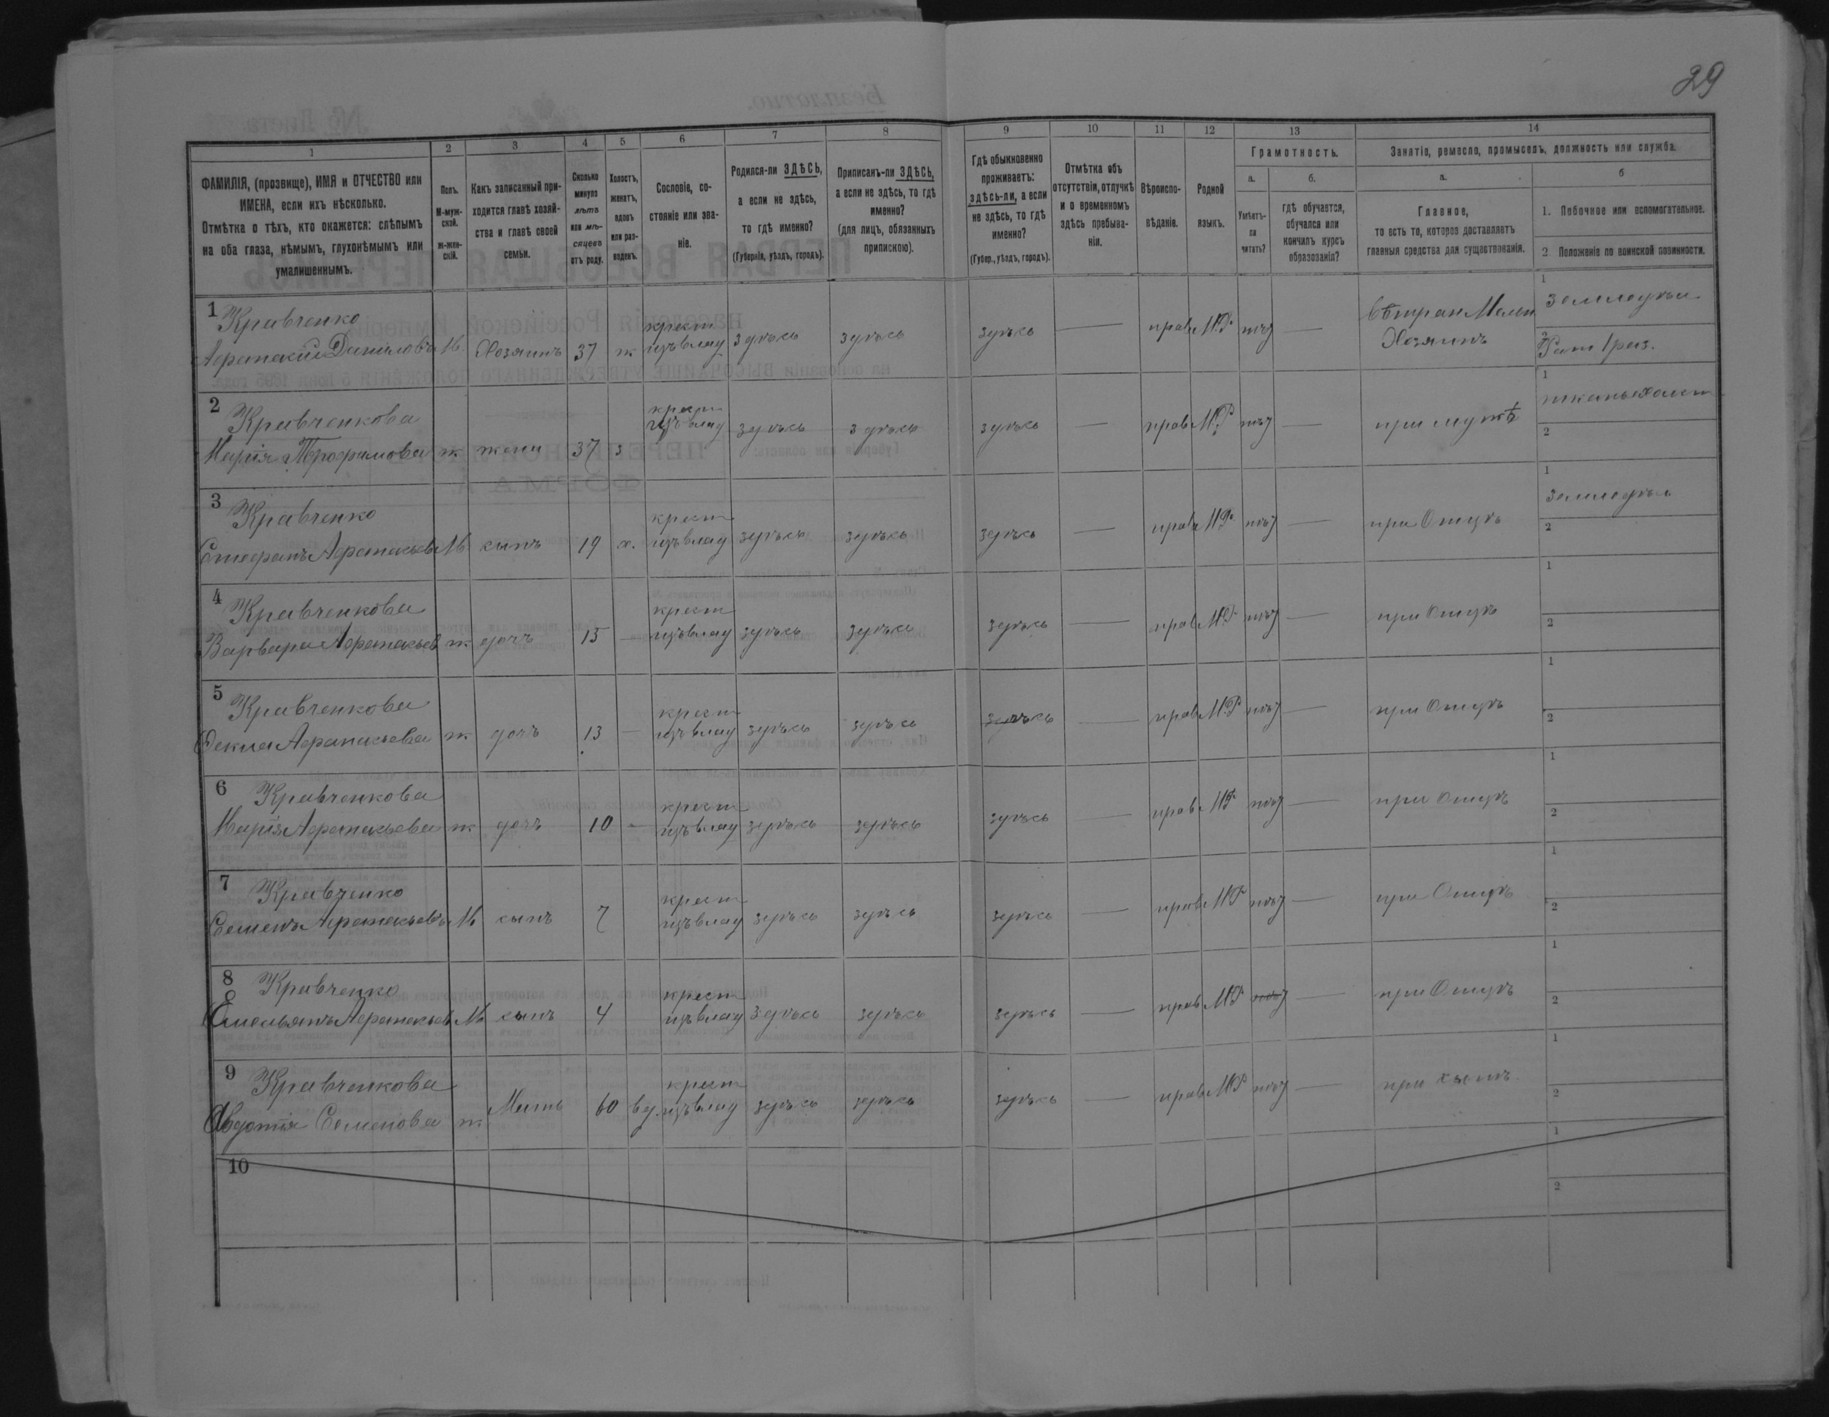 29
1 2 3 4 5 6 7 8 9 10 11 12 13 14
ФАМИЛІЯ, (прозвище), ИМЯ и ОТЧЕСТВО или
ИМЕНА, если ихъ нѣсколько.
Отмѣтка о тѣхъ, кто окажется: слѣпымъ
на оба глаза, нѣмымъ, глухонѣмымъ или
умалишеннымъ.
Полъ.
М-муж-
ской.
ж-жен-
скій.
Какъ записанный при-
ходится главѣ хозяй-
ства и главѣ своей
семьи.
Сколько
минуло
лѣтъ
или мѣ-
сяцевъ
отъ роду.
Холостъ,
женатъ,
вдовъ
или раз-
веденъ.
Сословіе, со-
стояніе или зва-
ніе.
Родился-ли ЗДѢСЬ,
а если не здѣсь,
то гдѣ именно?
(Губернія, уѣздъ, городъ).
Приписанъ-ли ЗДѢСЬ,
а если не здѣсь, то гдѣ
именно?
(для лицъ, обязанныхъ
припискою).
Гдѣ обыкновенно
проживаетъ:
здѣсь-ли, а если
не здѣсь, то гдѣ
именно?
(Губер., уѣздъ, городъ).
Отмѣтка объ
отсутствіи, отлучкѣ
и о временномъ
здѣсь пребыва-
ніи.
Вѣроиспо-
вѣданіе.
Родной
языкъ.
Грамотность.
а.
Умѣетъ-
ли
читать?
б.
гдѣ обучается,
обучался или
кончилъ курсъ
образованія?
Занятіе, ремесло, промыселъ, должность или служба.
а.
Главное,
то есть то, которое доставляетъ
главныя средства для существованія.
б
1. Побочное или вспомогательное.
2 Положеніе по воинской повинности.
1 Кравченко крест 1 земледѣл
Афанасій Даниловъ М Хозяинъ 37 ж изъ влад здѣсь здѣсь здѣсь — прав МР нѣт — Хозяинъ 2
2 Кравченкова крест 1
Марія Трофимова ж жена 37 з изъ влад здѣсь здѣсь здѣсь — прав МР нѣт — при мужѣ 2
3 Кравченко крест 1 земледѣл
Стефанъ Афанасьевъ М сынъ 19 х. изъ влад здѣсь здѣсь здѣсь — прав МР нѣт — при Отцѣ 2
4 Кравченкова крест 1
Варвара Афанасьев ж дочь 15 — изъ влад здѣсь здѣсь здѣсь — прав МР нѣт — при Отцѣ 2
5 Кравченкова крест 1
Фекла Афанасьева ж дочь 13 — изъ влад здѣсь здѣсь здѣсь — прав МР нѣт — при Отцѣ 2
6 Кравченкова крест 1
Марія Афанасьева ж дочь 10 - изъ влад здѣсь здѣсь здѣсь — прав МР нѣт — при Отцѣ 2
7 Кравченко крест 1
Семенъ Афанасьевъ М сынъ 7 изъ влад здѣсь здѣсь здѣсь — прав МР нѣт — при Отцѣ 2
8 Кравченко крест 1
Емельянъ Афанасьев М сынъ 4 изъ влад здѣсь здѣсь здѣсь — прав МР нѣт — при Отцѣ 2
9 Кравченкова крест 1
Авдотія Семенова ж Мать 60 вд. изъ влад здѣсь здѣсь здѣсь — прав МР нѣт — при 2
10 1
2